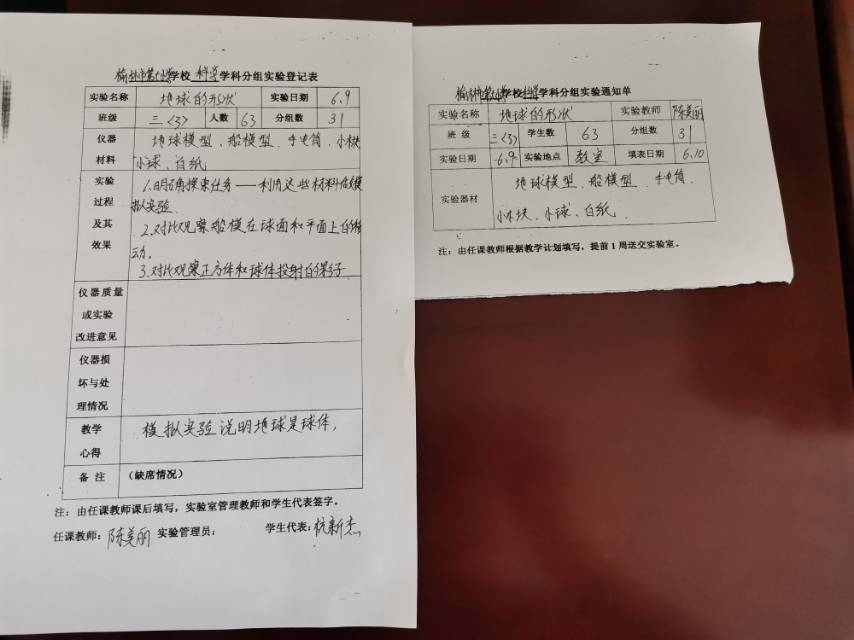 学校 科学 学科分组实验登记表
实验名称 地球的形状 实验日期 6.9
班级 三(3) 人数 63 分组数 31
仪器材料 地球模型、船模型、手电筒、小木块
小球、白纸
实验过程及其效果 1.明确探索任务——利用这些材料做模
拟实验
2.对比观察船模在球面和平面上的移
动。
3.对比观察正方体和球体投射的影子
仪器质量
或实验
改进意见
仪器损
坏与处
理情况
教学心得 模拟实验说明地球是球体,
备 注 (缺席情况)
注:由任课教师课后填写,实验室管理教师和学生代表签字。
任课教师:陈美丽 实验管理员: 学生代表:杭新杰
学校 学科分组实验通知单
实验名称 地球的形状 实验教师 陈美丽
班 级 三(3) 学生数 63 分组数 31
实验日期 6.9 实验地点 教室 填表日期 6.10
实验器材 地球模型、船模型、手电筒、
小木块、小球、白纸
注:由任课教师根据教学计划填写,提前1周送交实验室。